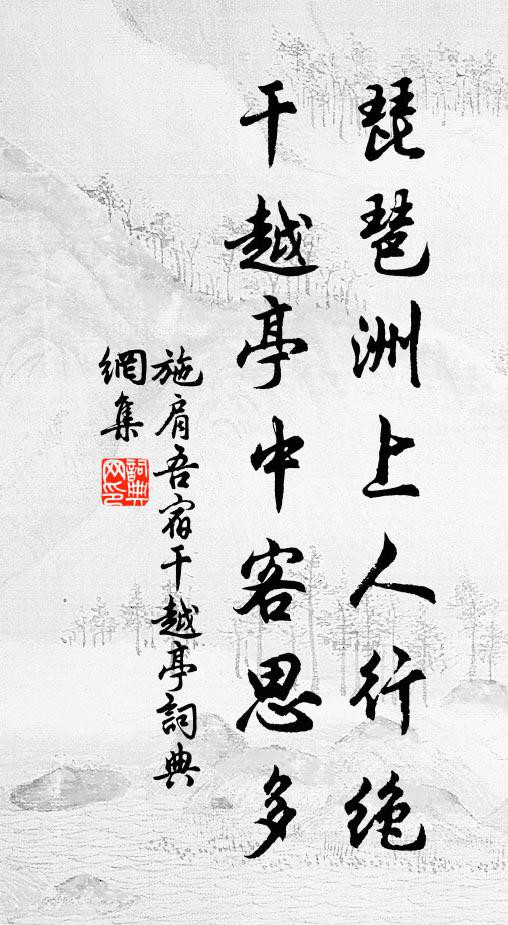 琵琶洲上人行绝
干越亭中客思多
施肩吾宿干越亭詞典
網集
詞典
网印